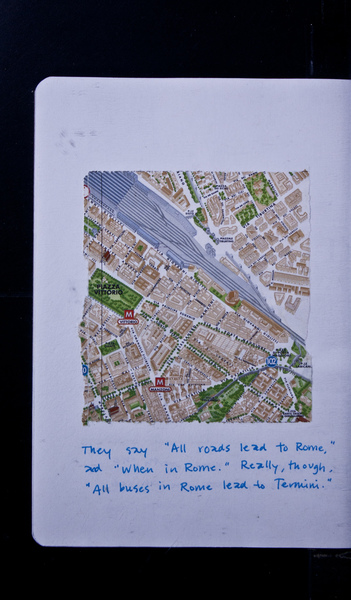 PIAZZA
VITTORIO
M
M
MANZONI
102
They say "All roads lead to Rome,"
and "When in Rome." Really, though,
"All buses in Rome lead to Termini."